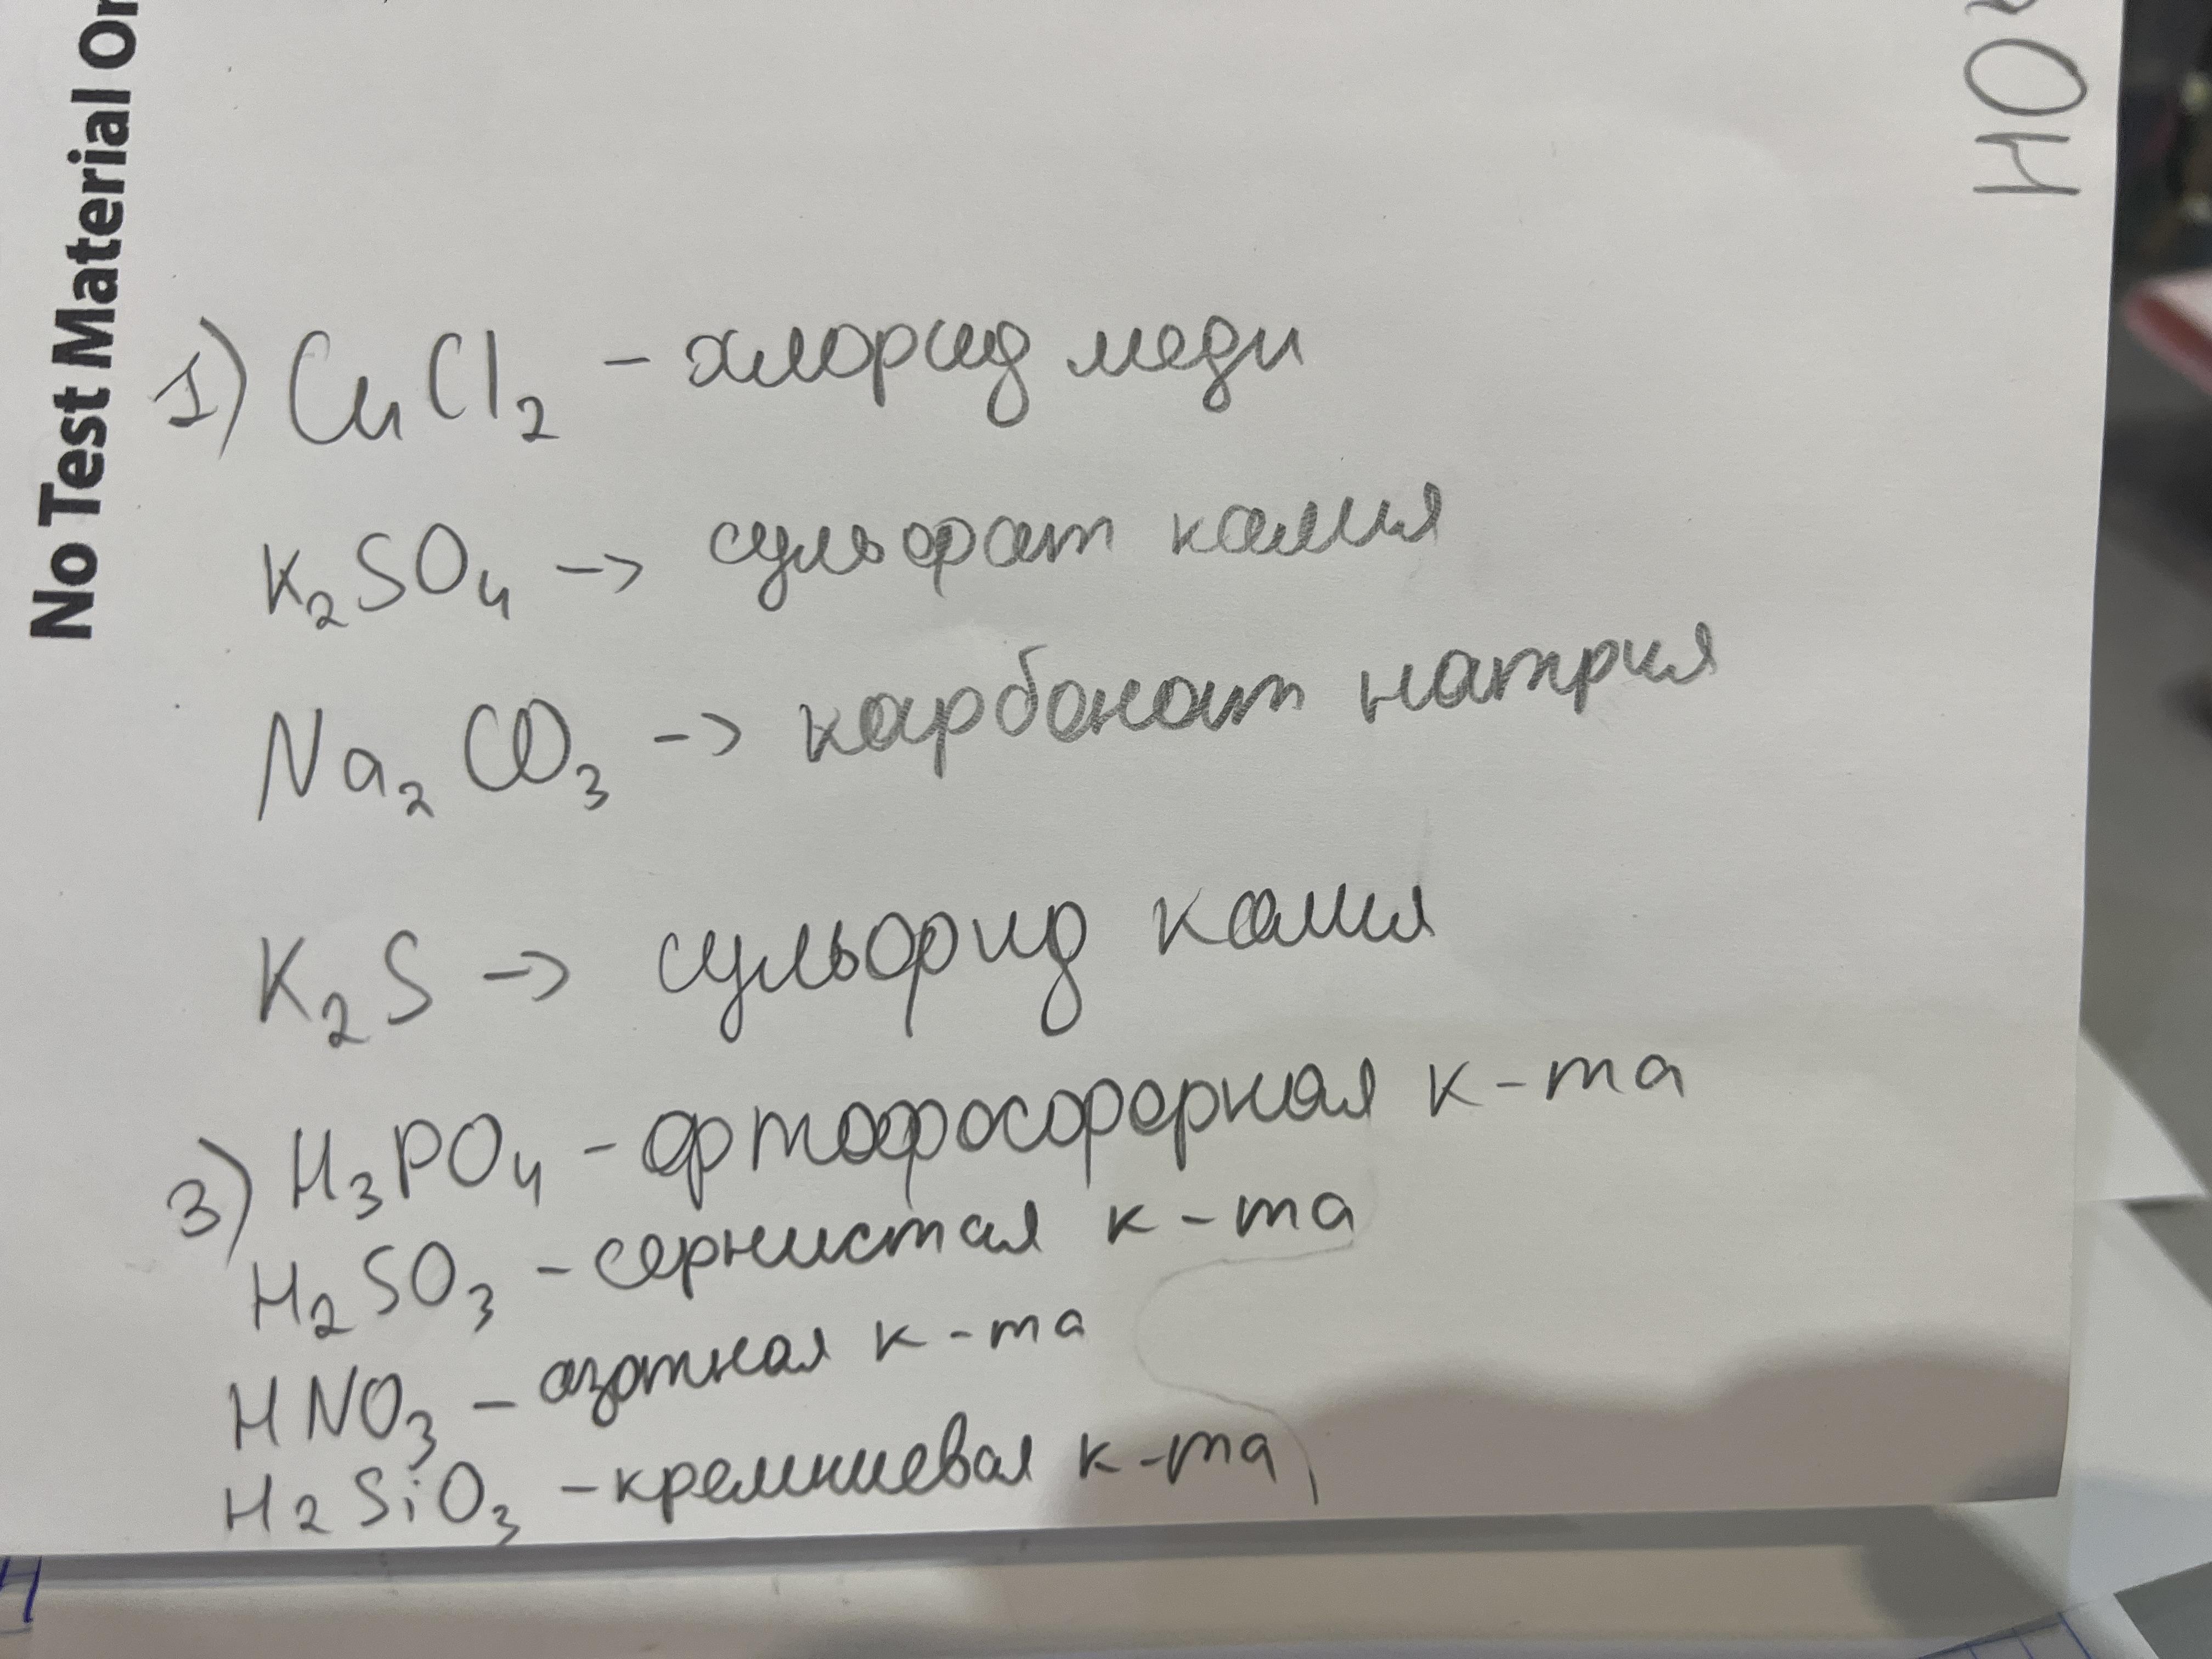 No Test Material On
1) CuCl₂ - хлорид меди
K₂SO₄ -> сульфат калия
Na₂CO₃ -> карбонат натрия
K₂S -> сульфид калия
3) H₃PO₄ - ортофосфорная к-та
H₂SO₃ - сернистая к-та
HNO₃ - азотная к-та
H₂SiO₃ - кремниевая к-та